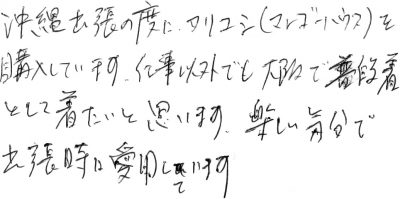 沖縄出張の度に、カリユシ(マンゴハウス)を
購入しています。仕事以外でも大阪で普段着
として着たいと思います。楽しい気分で
出張時に愛用しています